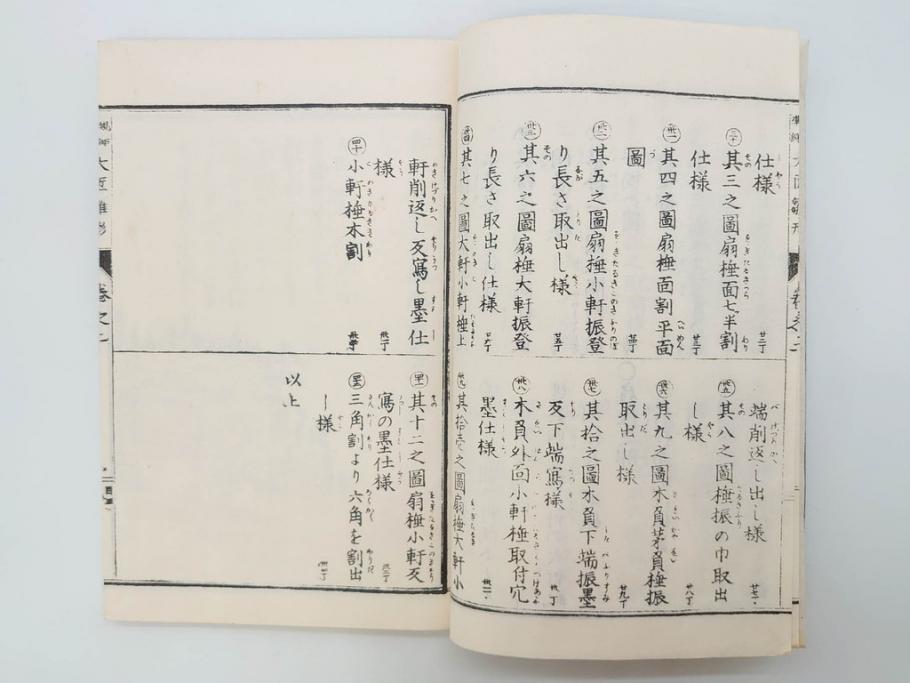 仕様 廿二丁
㉚ 其三之圖扇棰面七半割
仕様 廿三丁
㉛ 其四之圖扇棰面割平面
圖 廿四丁
㉜ 其五之圖扇棰小軒振登
り長さ取出し様 廿五丁
㉝ 其六之圖扇棰大軒振登
り長さ取出し仕様
㉞ 其七之圖大軒小軒棰上
端削返し出し様 廿七丁
㉟ 其八之圖棰振の巾取出
し様 廿八丁
㊱ 其九之圖木負茅負棰振
取出し様 廿九丁
㊲ 其拾之圖木負下端振墨
及下端寫様 卅丁
㊳ 木負外面小軒棰取付穴
墨仕様 卅一丁
㊴ 其拾壱之圖扇棰大軒小
軒削返し及寫し墨仕
様 卅二丁
㊵ 小軒棰木割
㊶ 其十二之圖扇棰小軒及
寫の墨仕様 卅三丁
三角割より六角を割出
し様 卅四丁
以上
大匠雛形
卷之二